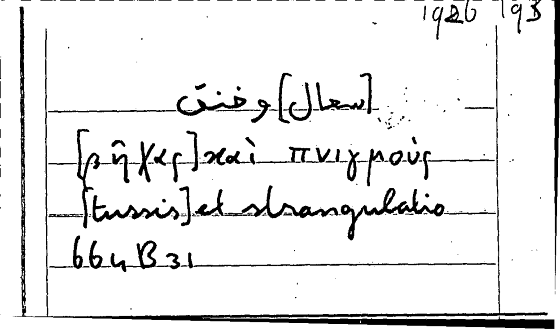 1926 193
[سعال] وخنق
[βῆχας] καὶ πνιγμούς
[tussis] et strangulatio
664 B 31